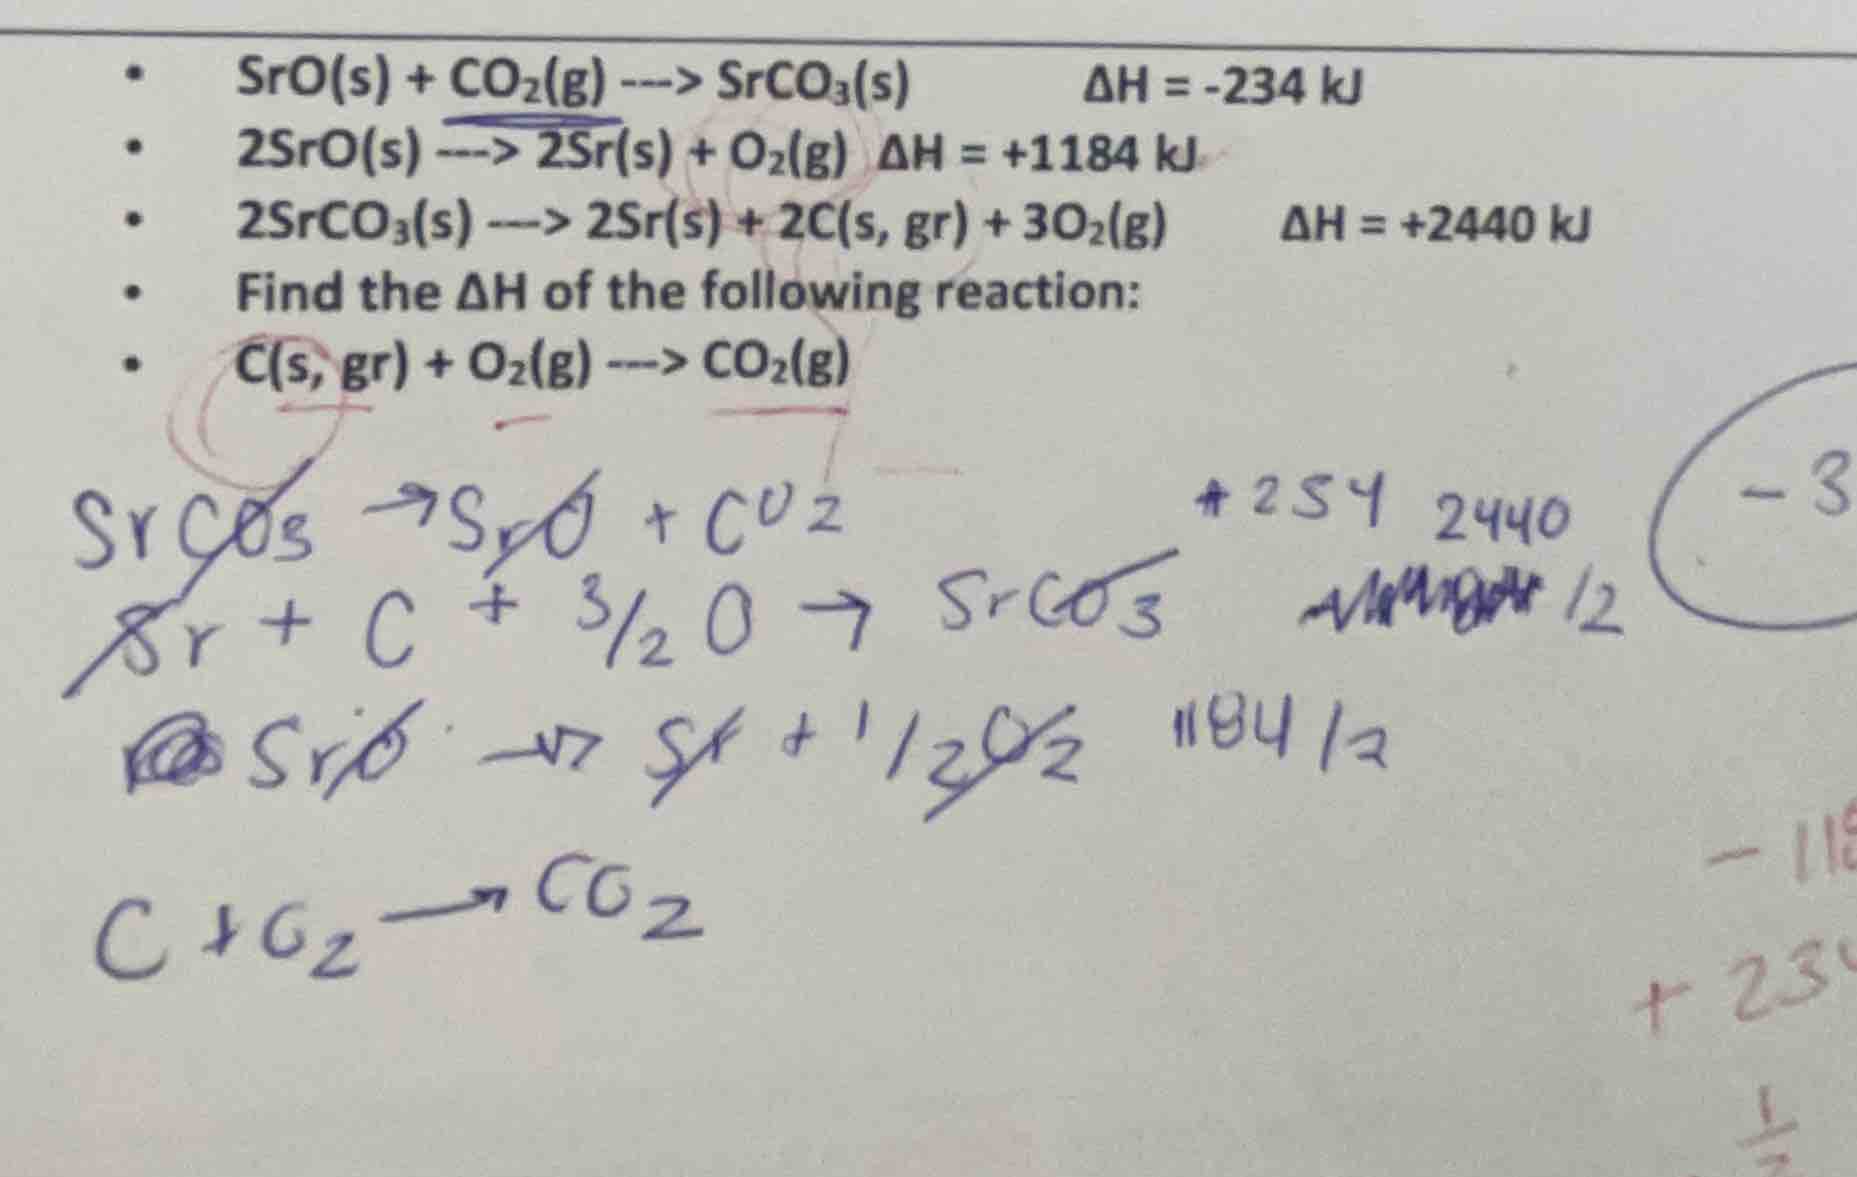 • SrO(s) + CO₂(g) ---> SrCO₃(s) ΔH = -234 kJ
• 2SrO(s) ---> 2Sr(s) + O₂(g) ΔH = +1184 kJ
• 2SrCO₃(s) ---> 2Sr(s) + 2C(s, gr) + 3O₂(g) ΔH = +2440 kJ
• Find the ΔH of the following reaction:
• C(s, gr) + O₂(g) ---> CO₂(g)
SrCO3 → SrO + CO2 + 254 2440
- 3
Sr + C + 3/2 O → SrCO3 /2
SrO → Sr + 1/2 O2 1184/2
- 118
C + O2 → CO2
+ 234
1/2